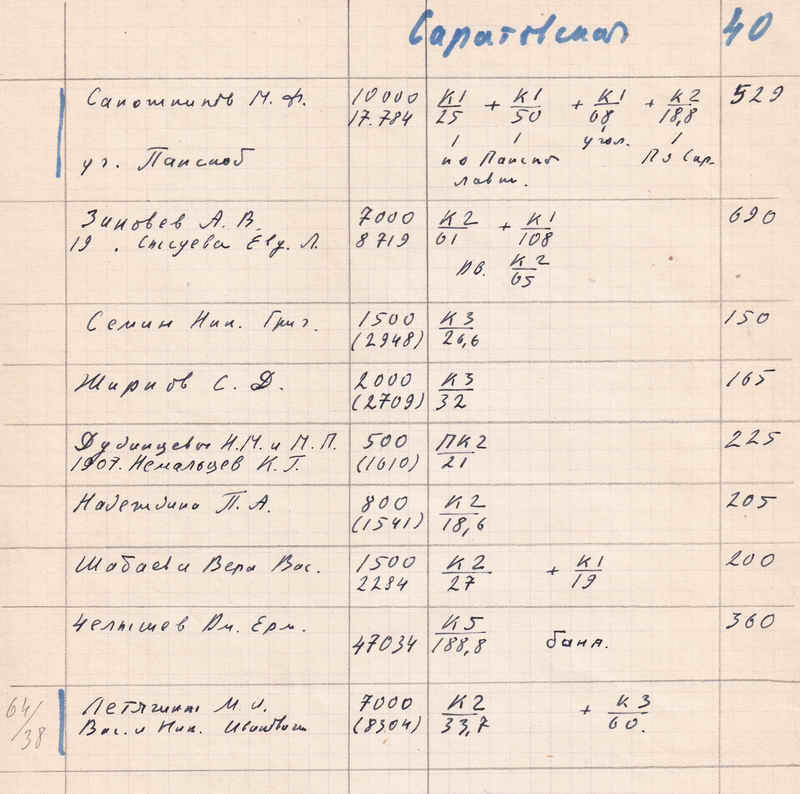 Саратовская 40
Сапожников М. Ф. 10000 К1 + К1 + К1 + К2 529
17.784 25 50 68 18,8
уг. Панской по Панск угол. По Сар.
лавки.
Зиновьев А. В. 7000 К2 + К1 690
19 . Евд. Л. 8719 61 108
дв. К2
65
Семин Ник. Григ. 1500 К3 150
(2948) 26,6
Жирнов С. Д. 2000 К3 165
(2709) 32
Н.М. и М. П. 500 ПК2 225
1907. Немальцев К. Г. (1610) 21
Надеждина П. А. 800 К2 205
(1541) 18,6
Шабаева Вера Вас. 1500 К2 + К1 200
2294 27 19
Челышев Дм. Ерм. К5 360
47034 188,8 баня.
64/38 Летягины М. И. 7000 К2 + К3
Вас. и Ник. Ивановичи (8304) 33,7 60.